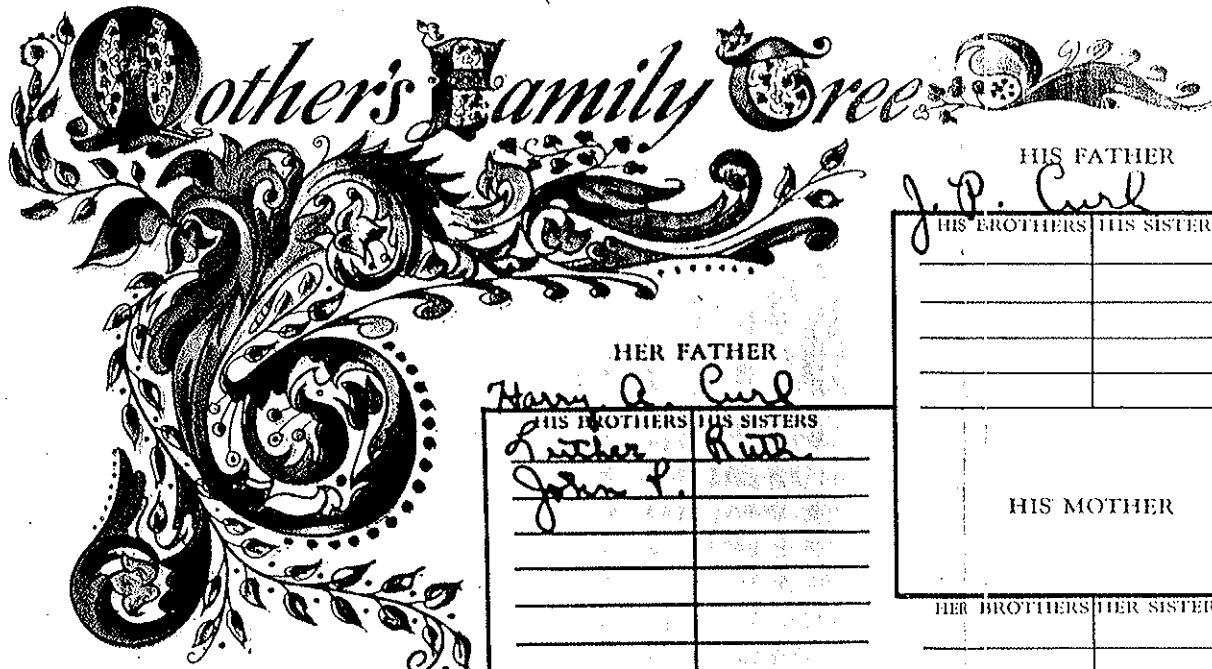 Mother's Family Tree
HIS FATHER
J. P. Curl
HIS BROTHERS HIS SISTER
HER FATHER
Harry A. Curl
HIS BROTHERS HIS SISTERS
Luther Ruth
John P.
HIS MOTHER
HER BROTHERS HER SISTER